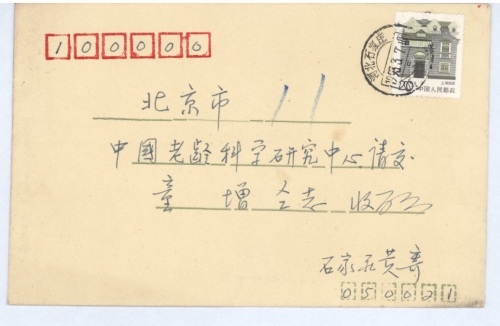 100000
北京市 11
中国老龄科学研究中心请交
童增仝志 收
石家庄黄寄
050021
河北石家庄
中国人民邮政